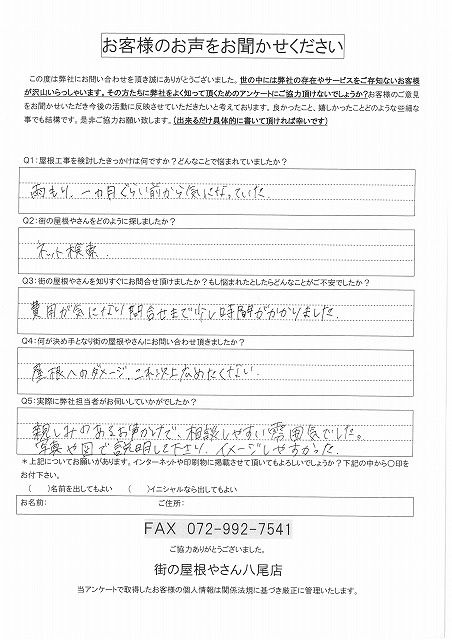 お客様のお声をお聞かせください
この度は弊社にお問い合わせを頂き誠にありがとうございました。世の中には弊社の存在やサービスをご存知ないお客様
が沢山いらっしゃいます。その方たちに弊社をよく知って頂くためのアンケートにご協力頂けないでしょうか?お客様のご意見
をお聞かせいただき今後の活動に反映させていただきたいと考えております。良かったこと、嬉しかったことどのような些細な
事でも結構です。是非ご協力お願い致します。(出来るだけ具体的に書いて頂ければ幸いです)
Q1:屋根工事を検討したきっかけは何ですか?どんなことで悩まれていましたか?
雨もり、一カ月ぐらい前から気になっていた。
Q2:街の屋根やさんをどのように探しましたか?
ネット検索、
Q3:街の屋根やさんを知りすぐにお問合せ頂けましたか?もし悩まれたとしたらどんなことがご不安でしたか?
費用が気になり問合せまで少し時間がかかりました。
Q4:何が決め手となり街の屋根やさんにお問い合わせ頂きましたか?
屋根へのダメージ、これ以上広めたくない。
Q5:実際に弊社担当者がお伺いしていかがでしたか?
親しみのあるお声がけで、相談しやすい雰囲気でした。
写真や図で説明して下さり、イメージしやすかった。
*上記についてお願いがあります。インターネットや印刷物に掲載させて頂いてもよろしいでしょうか?下記の中から〇印を
お付け下さい。
( )名前を出してもよい ( )イニシャルなら出してもよい
お名前: ご住所:
FAX 072-992-7541
ご協力ありがとうございました。
街の屋根やさん八尾店
当アンケートで取得したお客様の個人情報は関係法規に基づき厳正に管理いたします。